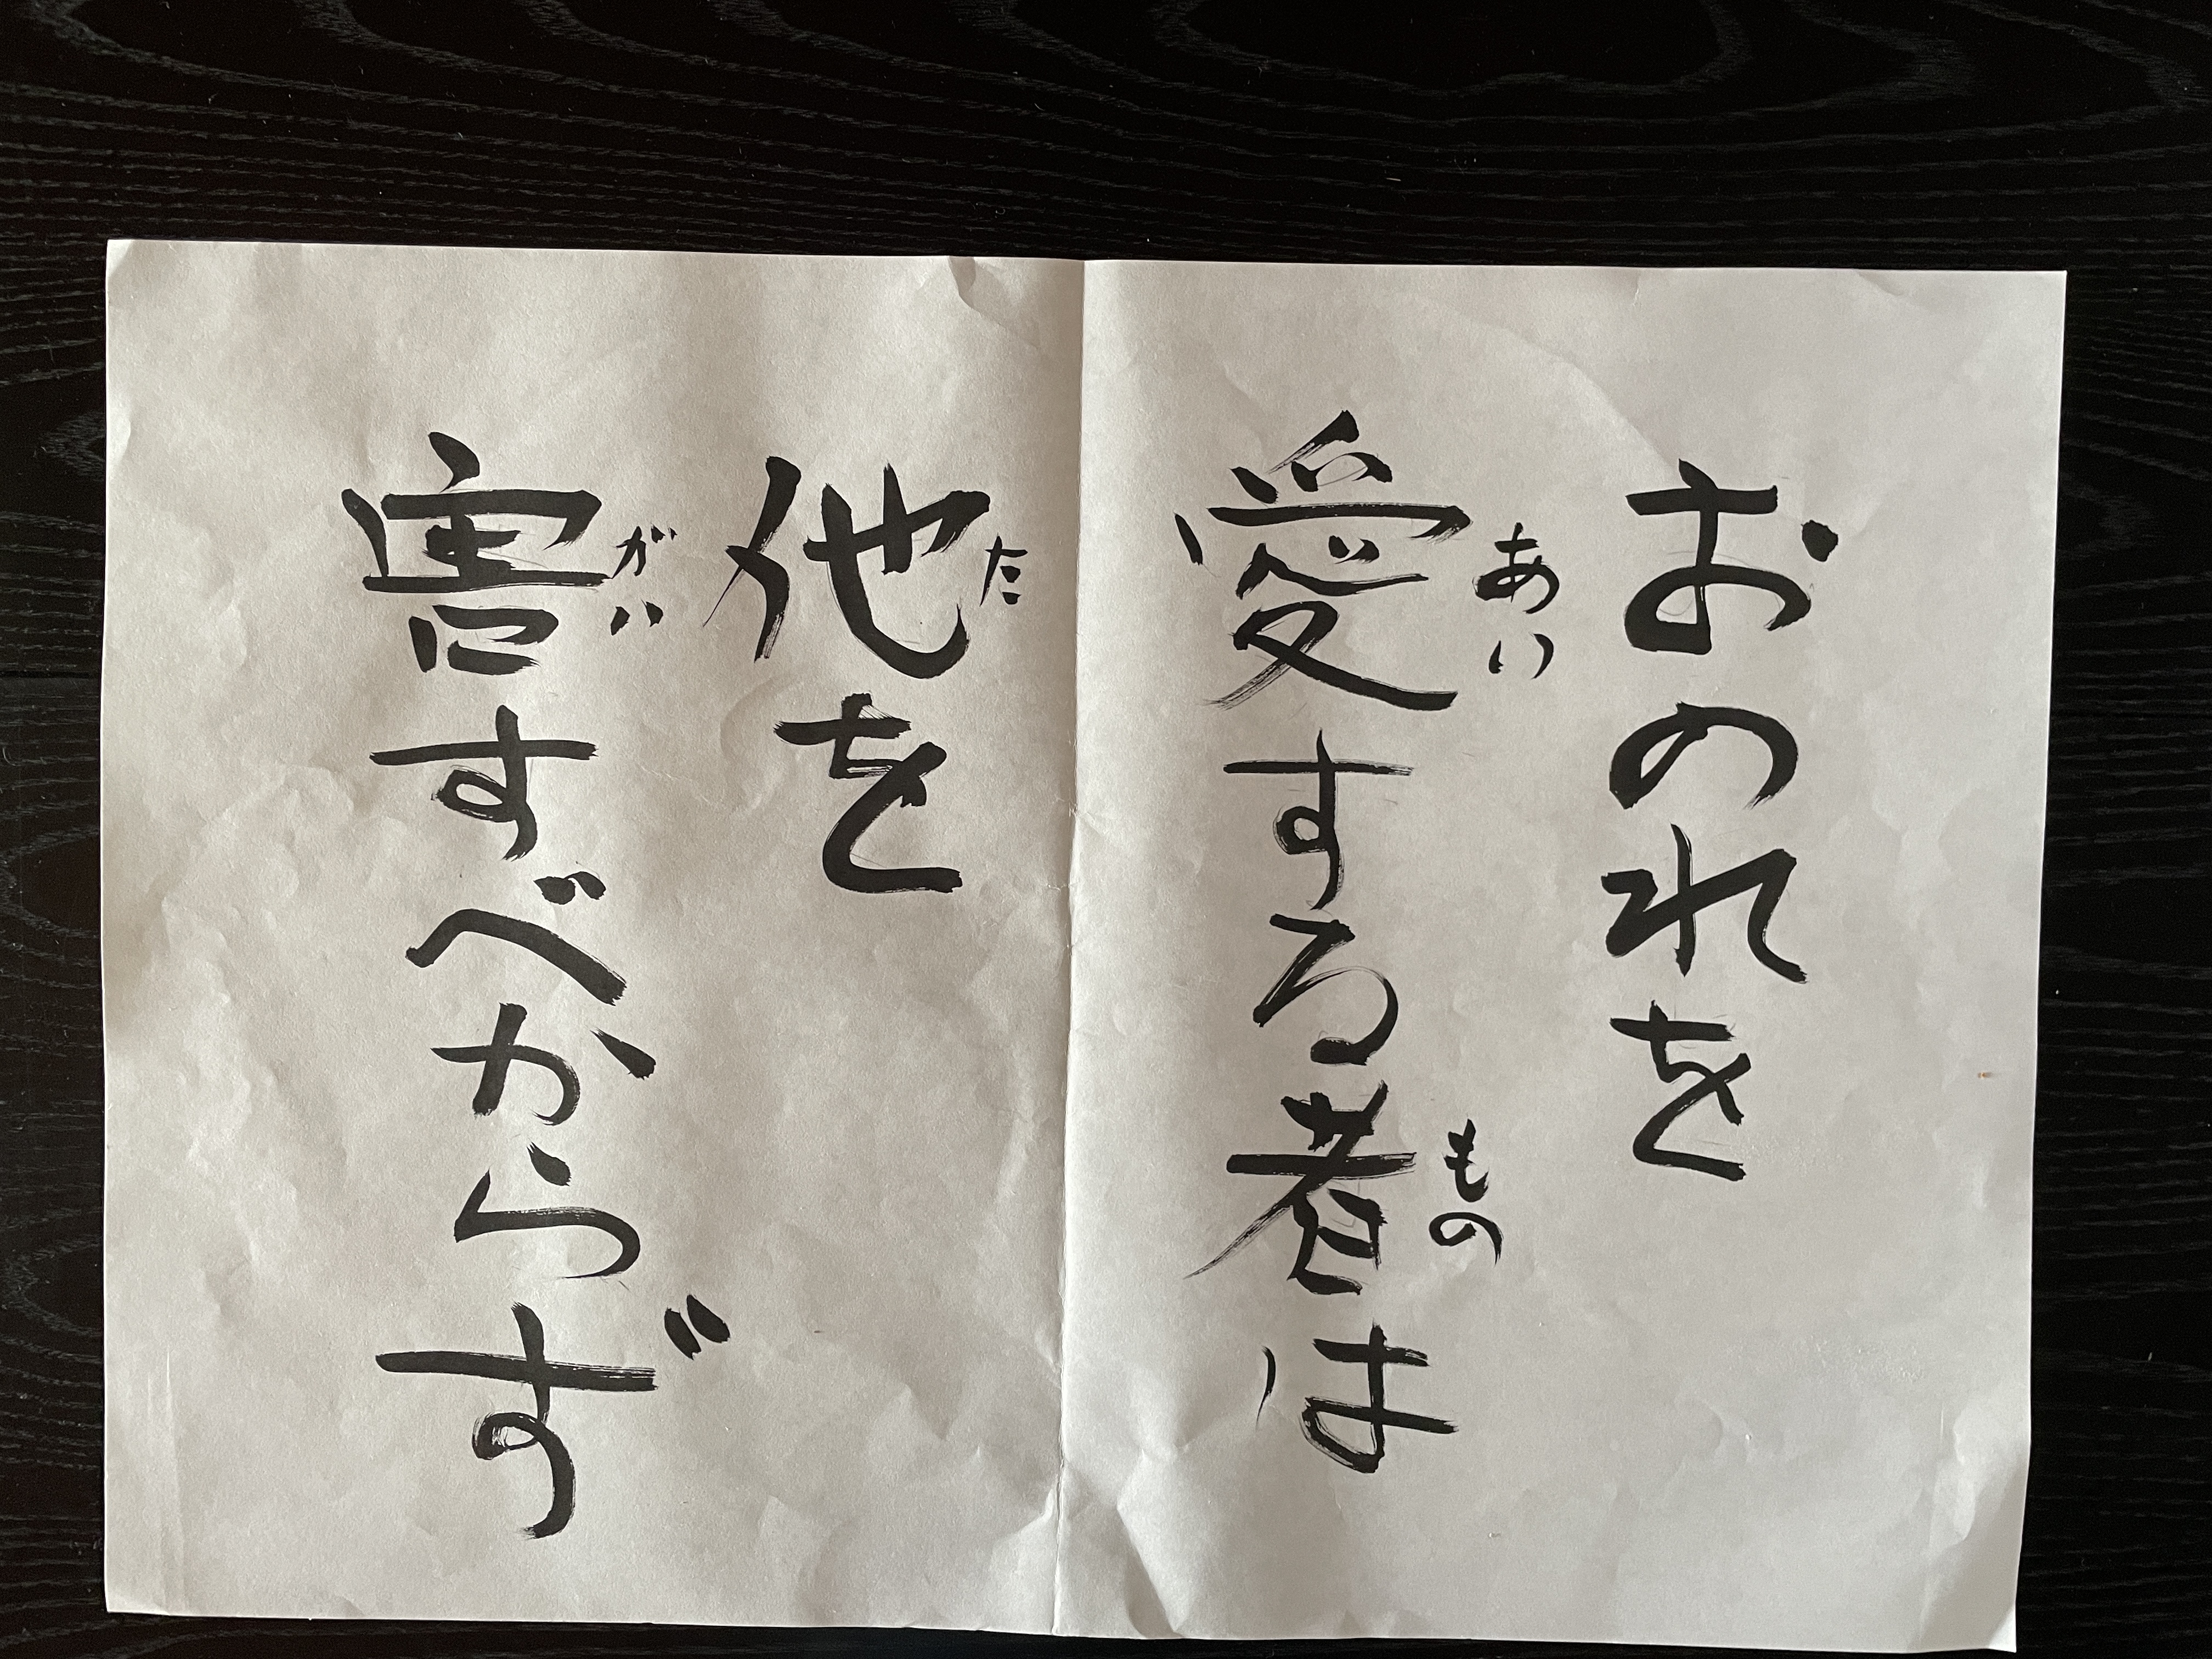 おのれを
愛する者は
あい
もの
他を
た
害すべからず
がい